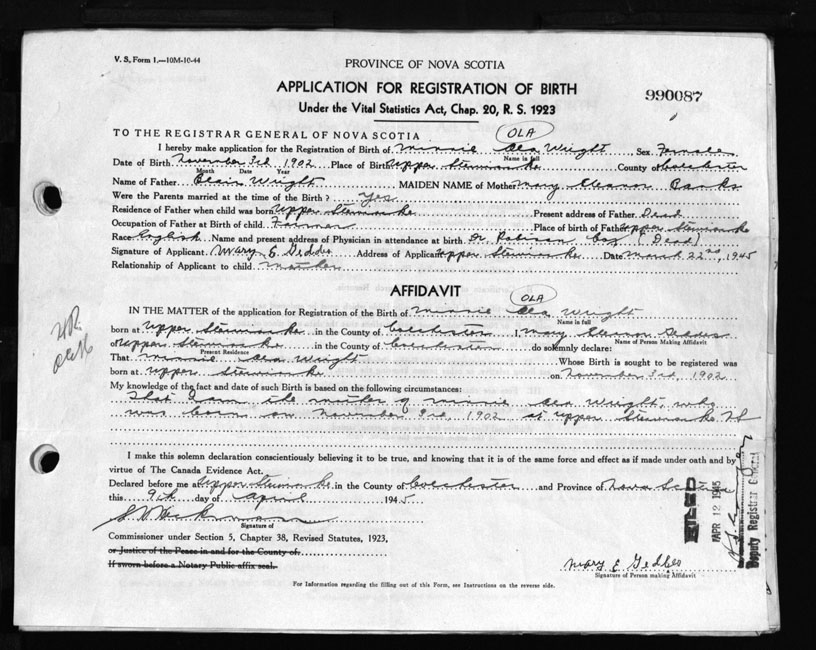 V. S. Form 1.—10M-10-44
PROVINCE OF NOVA SCOTIA
APPLICATION FOR REGISTRATION OF BIRTH
990087
Under the Vital Statistics Act, Chap. 20, R. S. 1923
TO THE REGISTRAR GENERAL OF NOVA SCOTIA
OLA
I hereby make application for the Registration of Birth of Minnie Ola Wright Sex Female
Name in full
Date of Birth November 3rd, 1902 Place of Birth Upper Stewiacke County of Colchester
Month Date Year
Name of Father Blair Wright MAIDEN NAME of Mother Mary Eleanor Banks
Were the Parents married at the time of the Birth? Yes
Residence of Father when child was born Upper Stewiacke Present address of Father Dead
Occupation of Father at Birth of child. Farmer Place of birth of Father Upper Stewiacke
Race English Name and present address of Physician in attendance at birth Dr Cox (Dead)
Signature of Applicant Mary E Geddes Address of Applicant Upper Stewiacke Date March 22nd, 1945
Relationship of Applicant to child mother
AFFIDAVIT
OLA
IN THE MATTER of the application for Registration of the Birth of Minnie Ola Wright
Name in full
born at Upper Stewiacke in the County of Colchester I, Mary Eleanor Geddes
Name of Person Making Affidavit
of Upper Stewiacke in the County of Colchester do solemnly declare:
Present Residence
That Minnie Ola Wright Whose Birth is sought to be registered was
born at Upper Stewiacke on November 3rd, 1902
My knowledge of the fact and date of such Birth is based on the following circumstances:
That I am the mother of Minnie Ola Wright, who
was born on November 3rd, 1902 at Upper Stewiacke NS
I make this solemn declaration conscientiously believing it to be true, and knowing that it is of the same force and effect as if made under oath and by
virtue of The Canada Evidence Act.
Declared before me at Upper Stewiacke in the County of Colchester and Province of Nova Scotia
this 9th day of April 1945
Signature of
Commissioner under Section 5, Chapter 38, Revised Statutes, 1923,
or Justice of the Peace in and for the County of
If sworn before a Notary Public affix seal.
Mary E Geddes
Signature of Person making Affidavit
For Information regarding the filling out of this Form, see Instructions on the reverse side.
FILED
APR 12 1945
Deputy Registrar